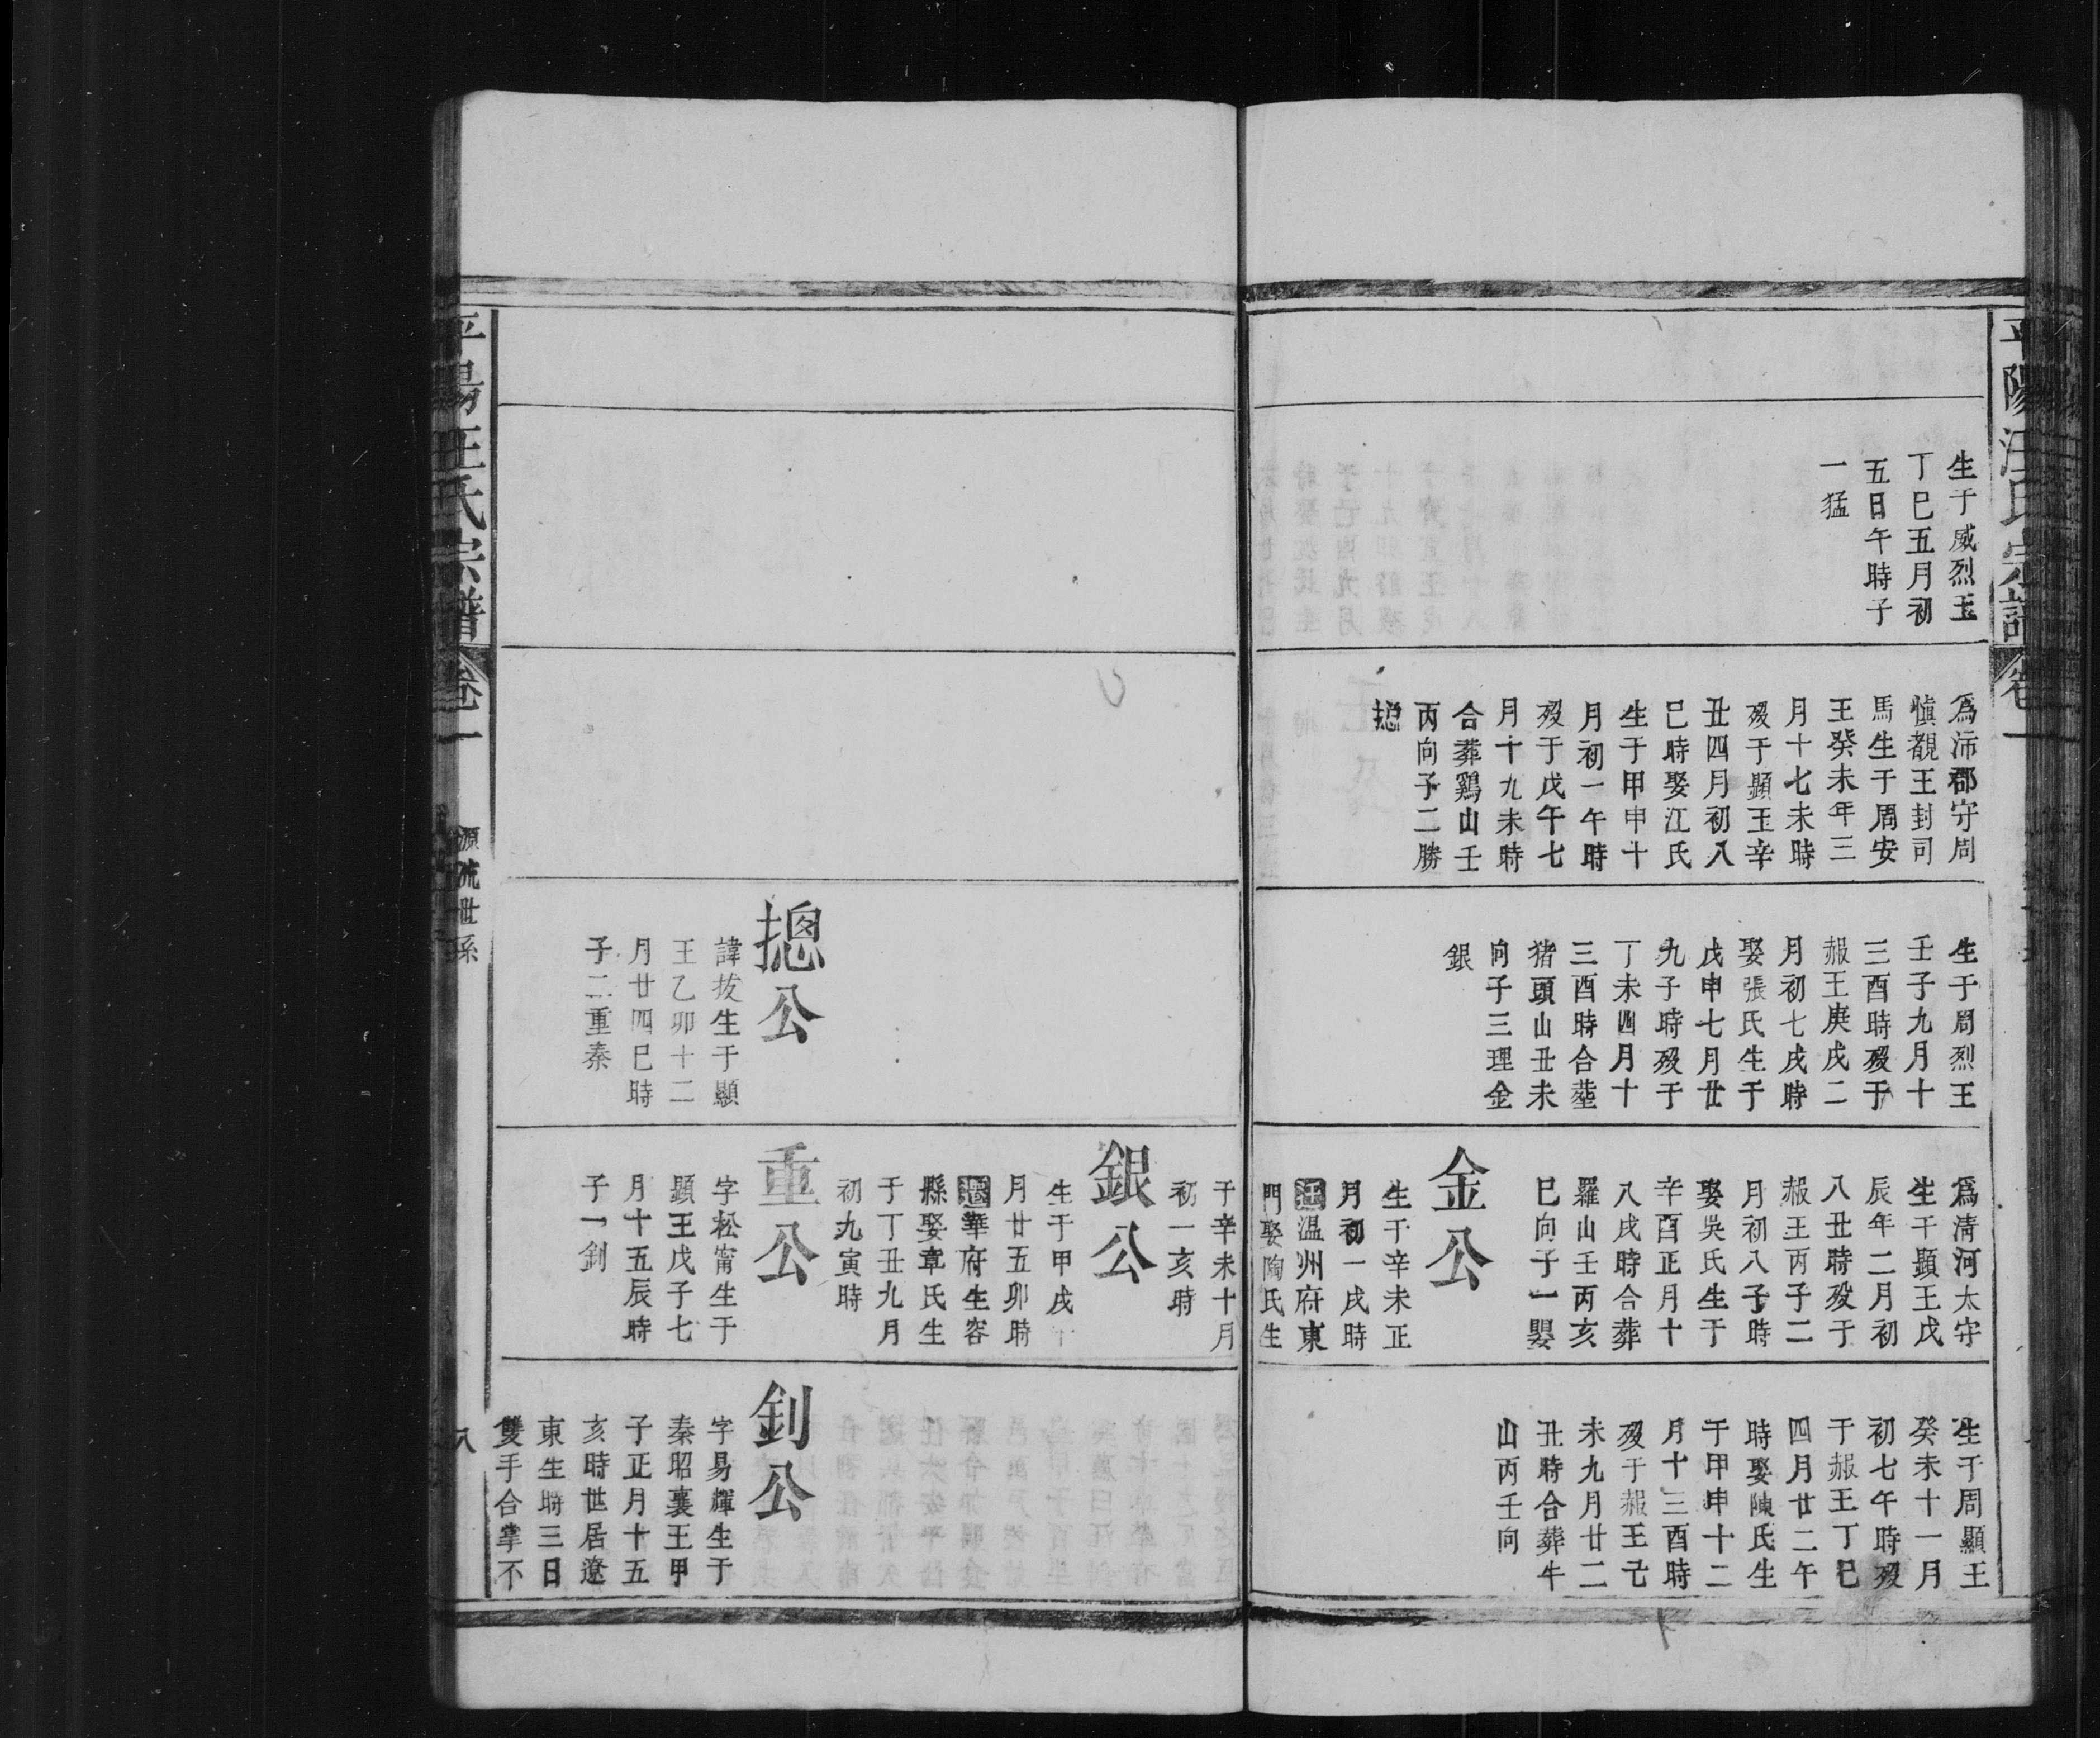 平陽汪氏宗譜
卷一
生于威烈王
丁巳五月初
五日午時子
一猛
為沛郡守周
慎靚王封司
馬生于周安
王癸未年三
月十七未時
歿于顯王辛
丑四月初八
巳時娶江氏
生于甲申十
月初一午時
歿于戊午七
月十九未時
合葬鷄山壬
丙向子二勝
摠
生于周烈王
壬子九月十
三酉時歿于
赧王庚戌二
月初七戌時
娶張氏生于
戊申七月廿
九子時歿于
丁未四月十
三酉時合塟
猪頭山丑未
向子三理金
銀
為清河太守
生于顯王戊
辰年二月初
八丑時歿于
赧王丙子二
月初八子時
娶吳氏生于
辛酉正月十
八戌時合葬
羅山壬丙亥
巳向子一嬰
金公
生于辛未正
月初一戌時
溫州府東
門娶陶氏生
生于周顯王
癸未十一月
初七午時歿
于赧王丁巳
四月廿二午
時娶陳氏生
于甲申十二
月十三酉時
歿于赧王己
未九月廿二
丑時合葬牛
山丙壬向
于辛未十月
初一亥時
銀公
生于甲戌十
月廿五卯時
遷華府生容
縣娶章氏生
于丁丑九月
初九寅時
摠公
諱拔生于顯
王乙卯十二
月廿四巳時
子二重秦
重公
字松甯生于
顯王戊子七
月十五辰時
子一釗
釗公
字易輝生于
秦昭襄王甲
子正月十五
亥時世居遼
東生時三日
雙手合掌不
平陽汪氏宗譜
卷一
源流世系
八